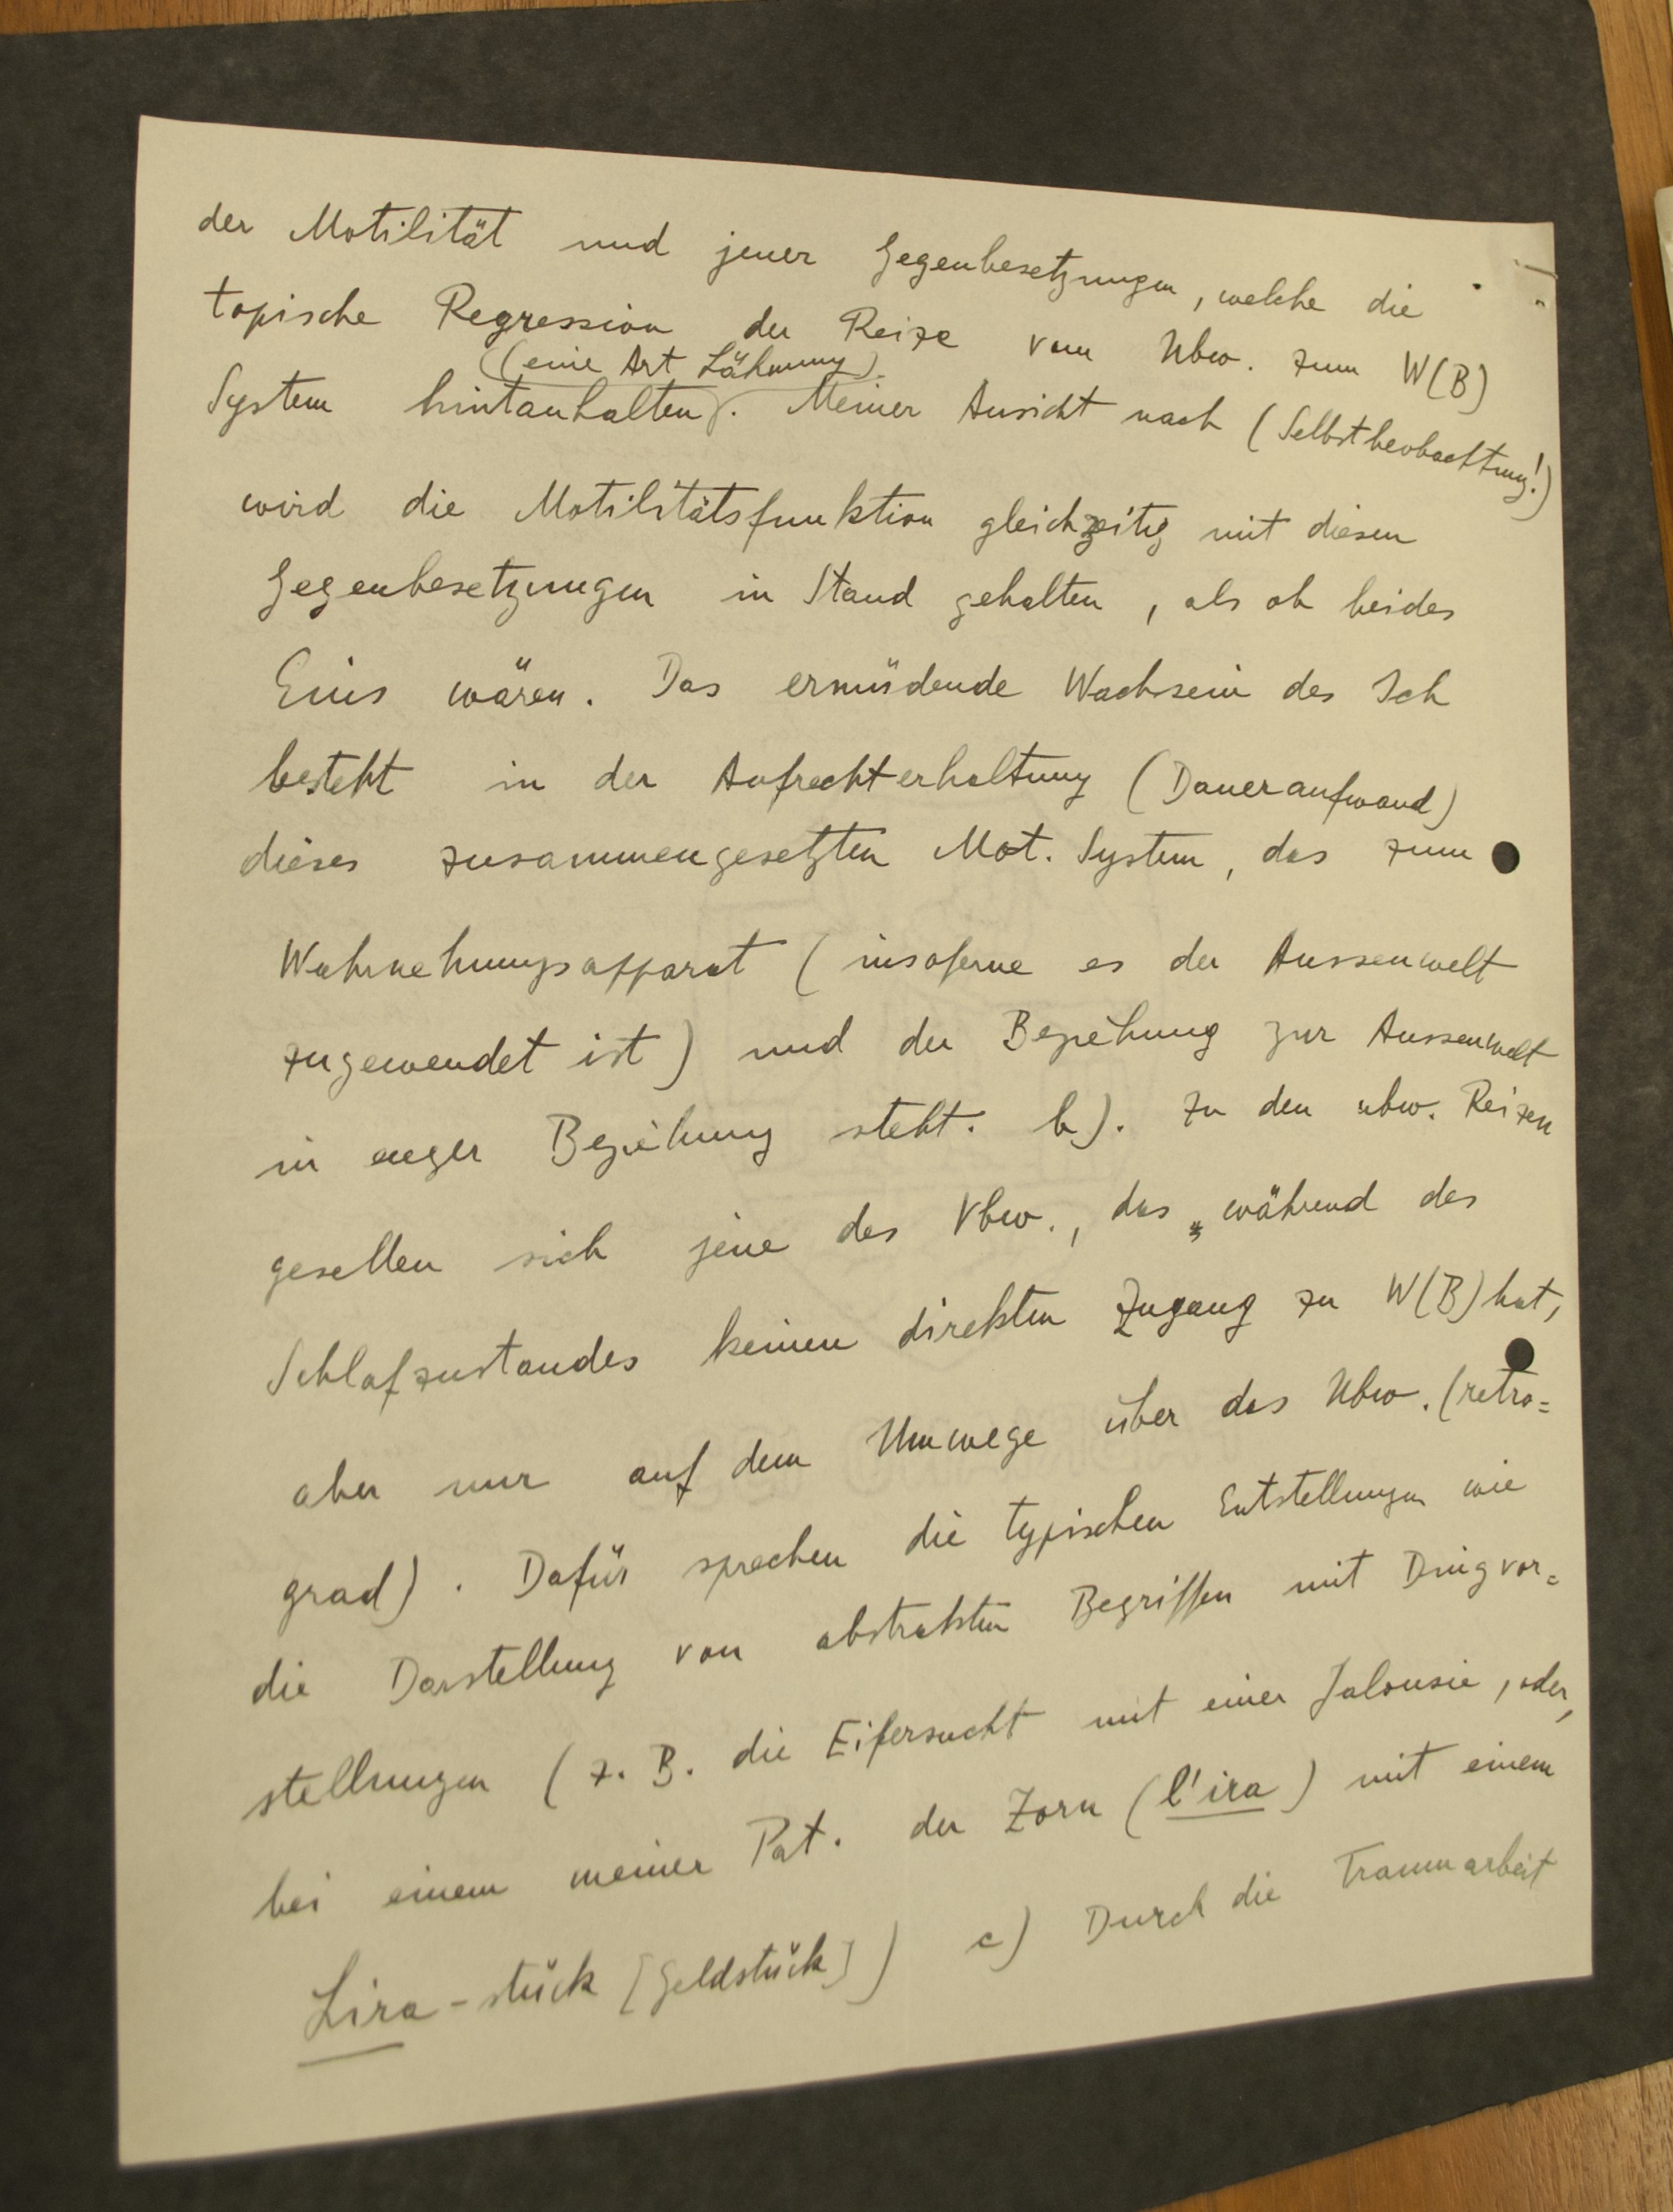 der Motilität und jener Gegenbesetzungen, welche die
topische Regression der Reize vom Ubw. zum W(B)
(eine Art Lähmung)
System hintanhalten. Meiner Ansicht nach (Selbstbeobachtung!)
wird die Motilitätsfunktion gleichzeitig mit diesen
Gegenbesetzungen in Stand gehalten, als ob beides
Eins wären. Das ermüdende Wachsein des Ich
besteht in der Aufrechterhaltung (Daueraufwand)
dieses zusammengesetzten Mot. System, das zum
Wahrnehmungsapparat (insoferne es der Aussenwelt
zugewendet ist) und der Beziehung zur Aussenwelt
in enger Beziehung steht. b). Zu den ubw. Reizen
gesellen sich jene des Vbw., das während des
Schlafzustandes keinen direkten Zugang zu W(B) hat,
aber nur auf dem Umwege über das Ubw. (retro=
grad). Dafür sprechen die typischen Entstellungen wie
die Darstellung von abstrakten Begriffen mit Dingvor=
stellungen (z. B. die Eifersucht mit einer Jalousie, oder,
bei einem meiner Pat. der Zorn (l'ira) mit einem
Lira-stück [Geldstück]) c) Durch die Traumarbeit